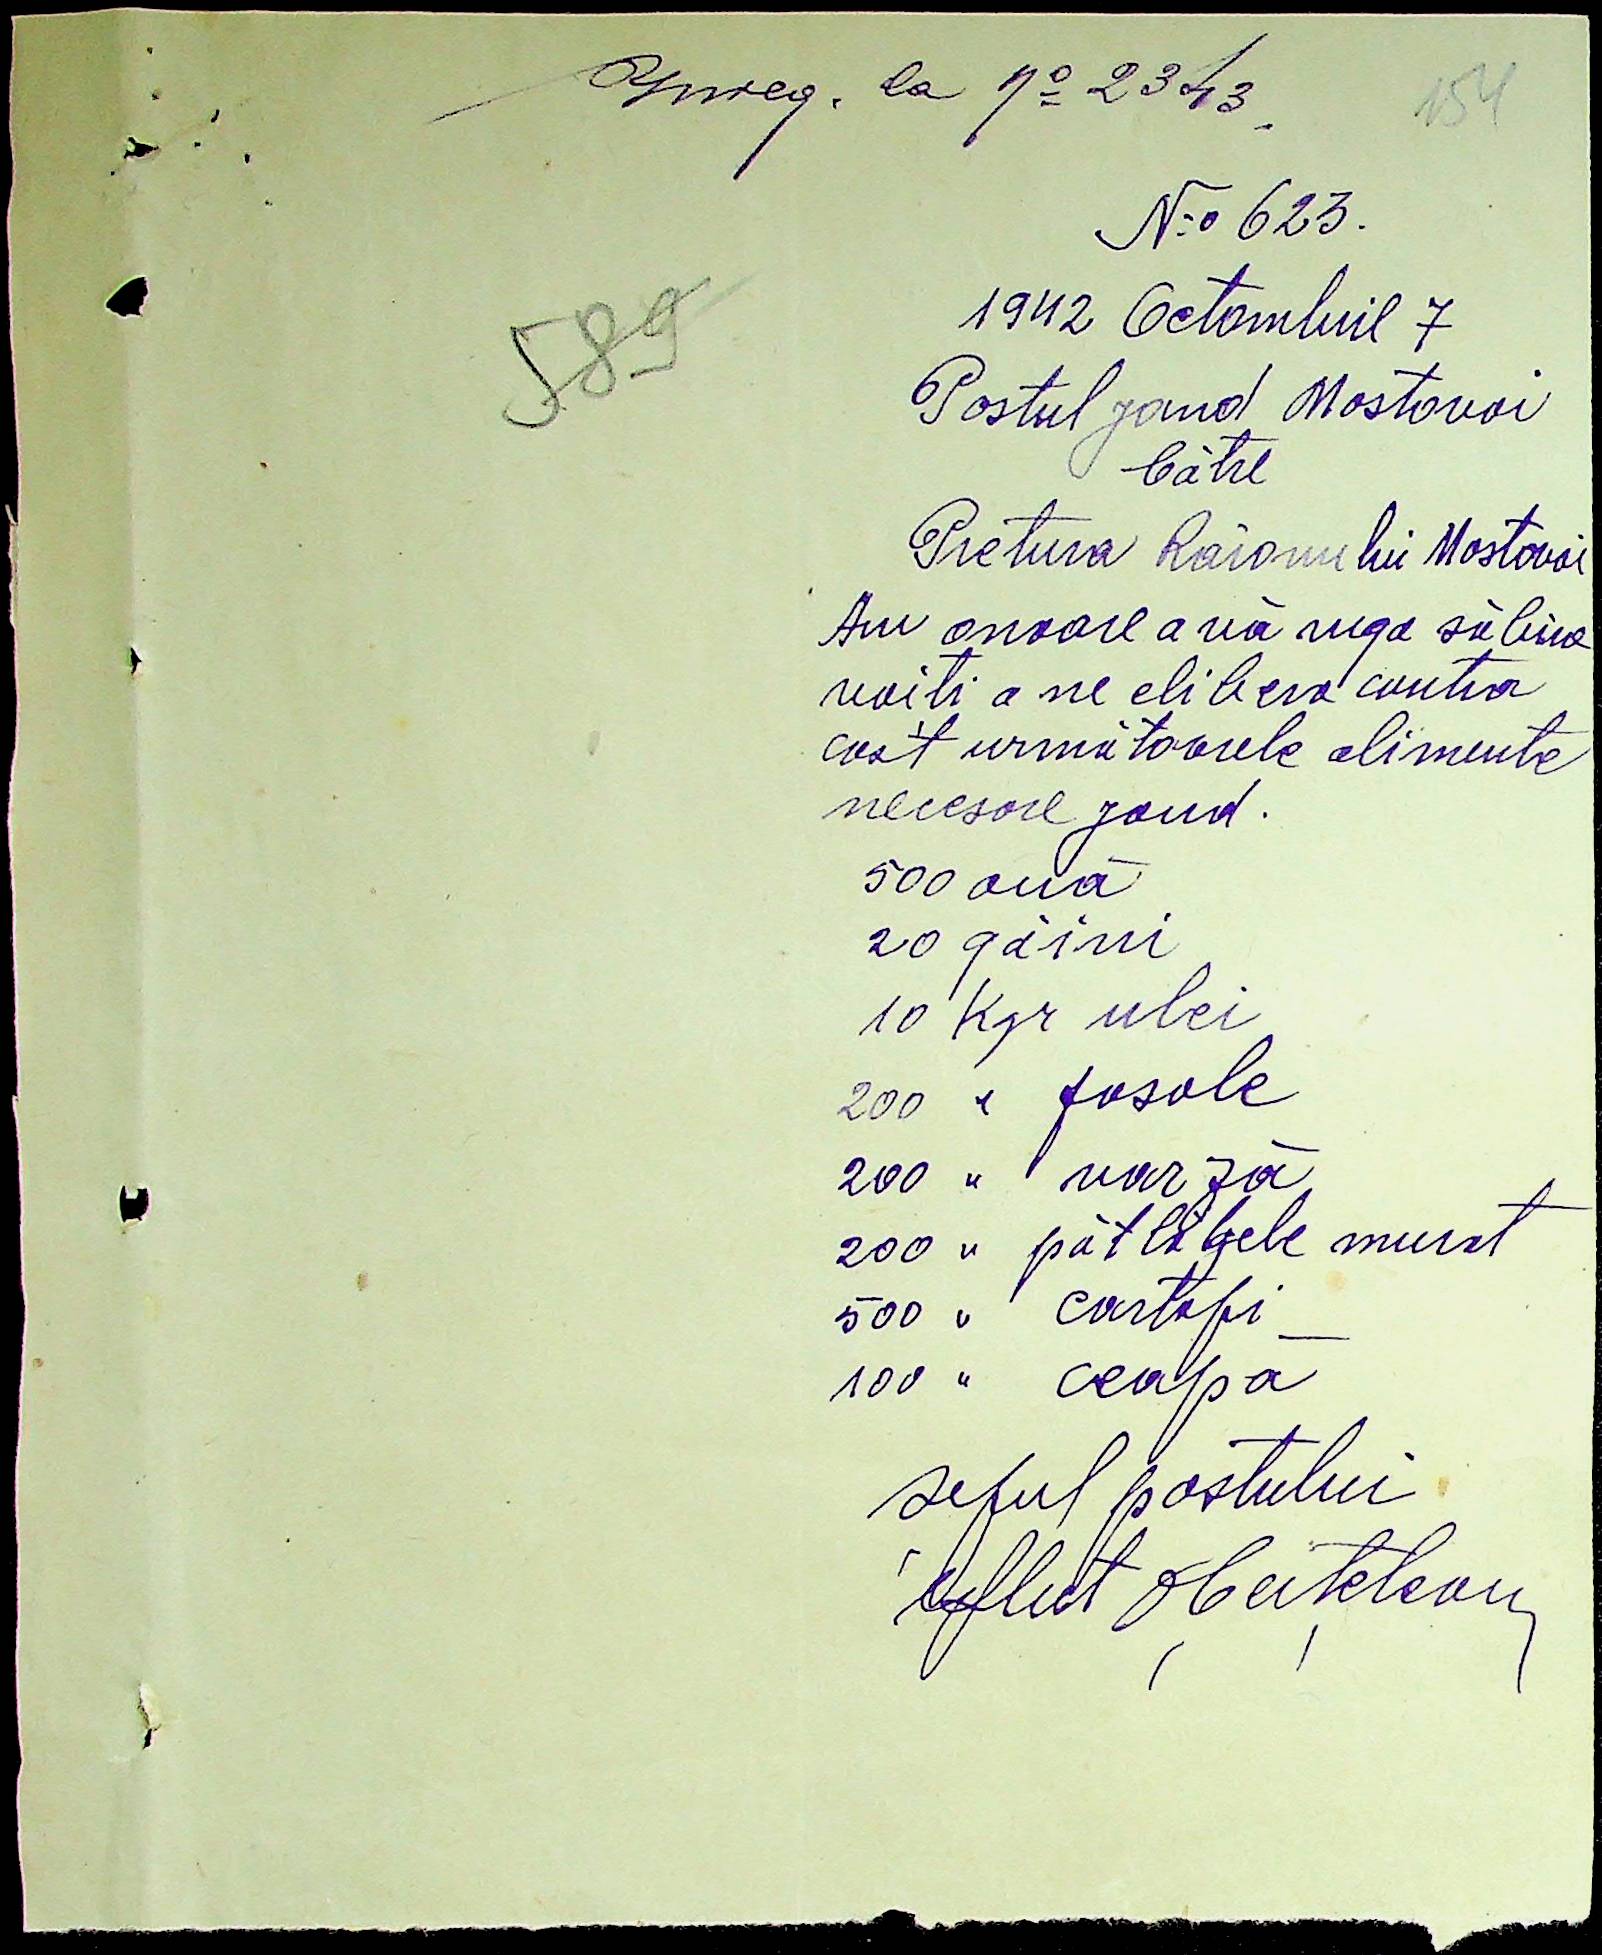 Inreg. la No 2343.
154
No 623.
589
1942 Octombrie 7
Postul jand Mostovoi
Către
Pretura Raionului Mostovoi
Am onoare a vă ruga să bine
voiti a ne elibera contra
cost următoarele alimente
necesare jand.
500 ouă
20 găini
10 Kgr ulei
200 " fasole
200 " varză
200 " pătlăgele murat
500 " cartofi
100 " ceapă
seful postului